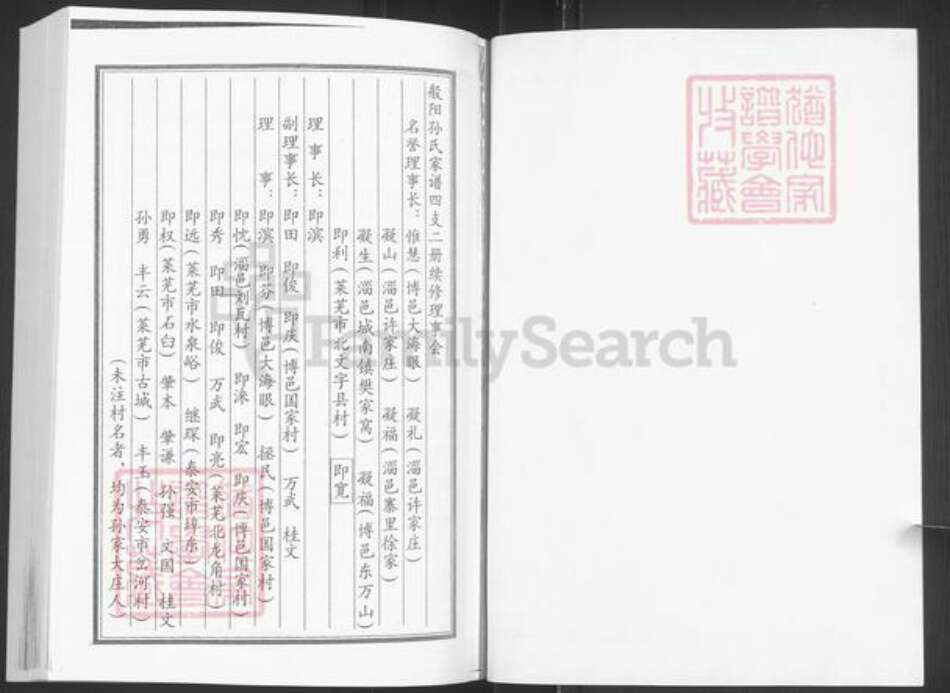 般阳孙氏家谱四支二册续修理事会
名誉理事长：惟慧(博邑大海眼) 凝礼(淄邑许家庄)
凝山(淄邑许家庄) 凝福(淄邑寨里徐家)
凝生(淄邑城南镇樊家窝) 凝福(博邑东万山)
即利(莱芜市北文字县村) 即宽
理事长：即滨
副理事长：即田 即俊 即庆(博邑国家村) 万武 桂文
理事：即滨 即芬(博邑大海眼) 拯民(博邑国家村)
即忱(淄邑刘瓦村) 即涞 即宏 即庆(博邑国家村)
即秀 即田 即俊 万武 即亮(莱芜北龙角村)
即远(莱芜市水泉峪) 继琛(泰安市埠东)
即权(莱芜市石臼) 肇本 肇谦 孙强 文国 桂文
孙勇 丰云(莱芜市古城) 丰玉(泰安市岔河村)
(未注村名者，均为孙家大庄人)
FamilySearch
家
譜學會
收藏